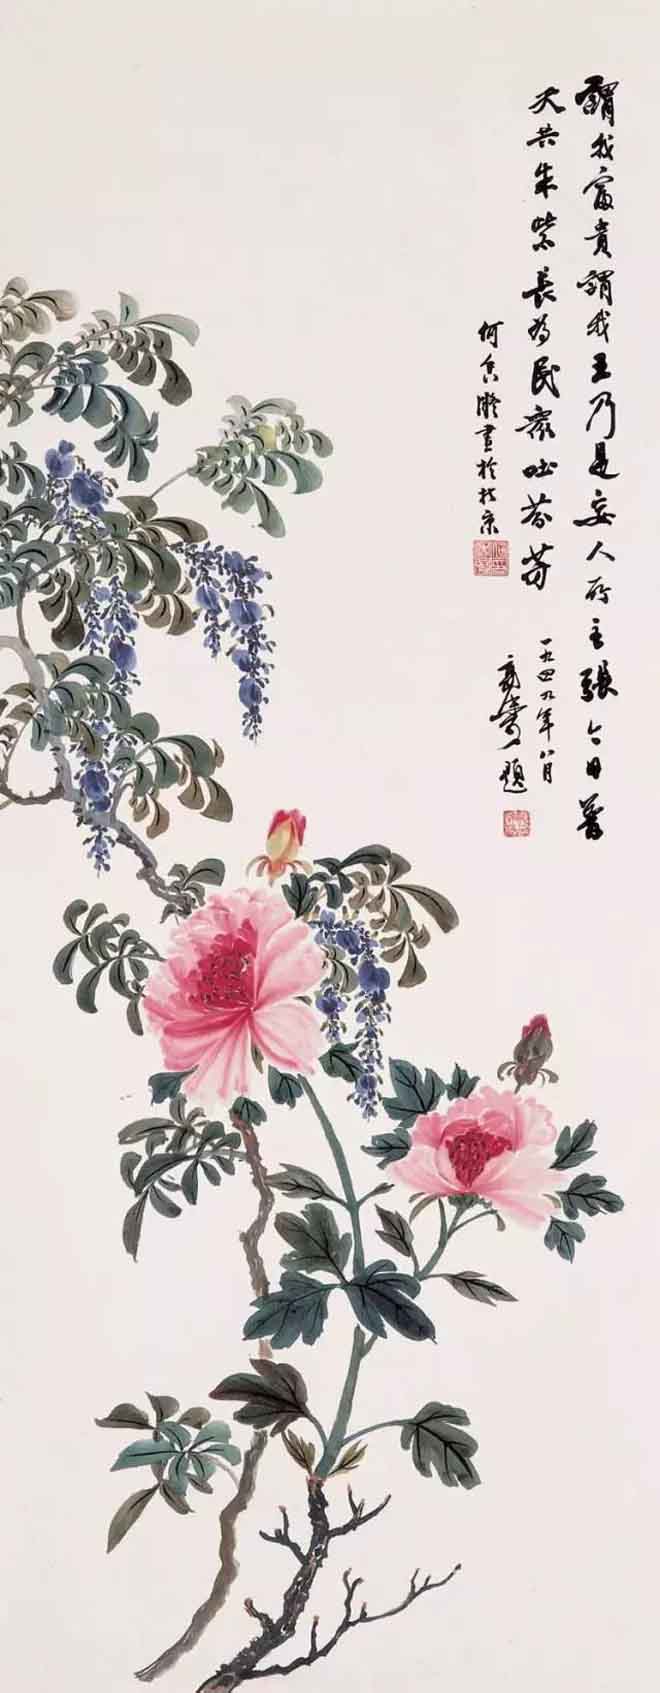 謂我富貴謂我王乃是妄人所主張今日普
天共朱紫長為民眾吐芬芳
何香凝畫於京
一九四九年八月
題